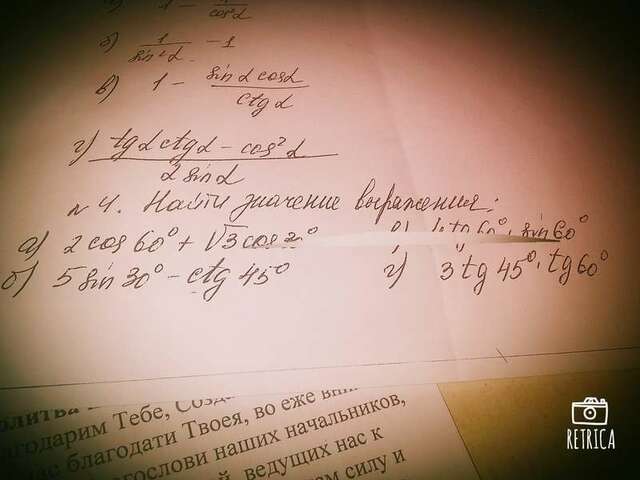 1 - 1/cos²α
б) 1/sin²α - 1
в) 1 - sinα cosα / ctgα
г) tgα ctgα - cos²α / 2 sinα
№ 4. Найти значение выражения:
а) 2 cos 60° + √3 cos 30°
tg 60° · sin 60°
б) 5 sin 30° - ctg 45°
г) 3 tg 45° · tg 60°
Тебе,
благодати Твоея, во еже
наших начальников,
ведущих нас к
силу и
RETRICA